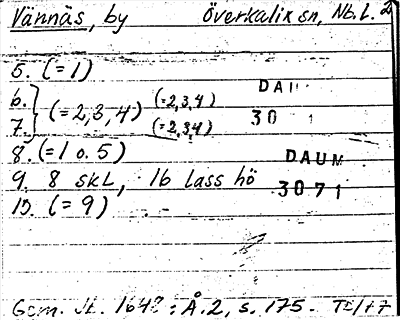 Vännäs, by Överkalix sn, Nb. l. 2
5. (=1)
6. } (=2,3,4) (=2,3,4) DAU
7. (=2,3,4) 30 1
8. (=1 o. 5) DAUM
9. 8 skl, 16 lass hö 3071
10. (=9)
Gem. Jb. 1648: Å. 2, s. 175.